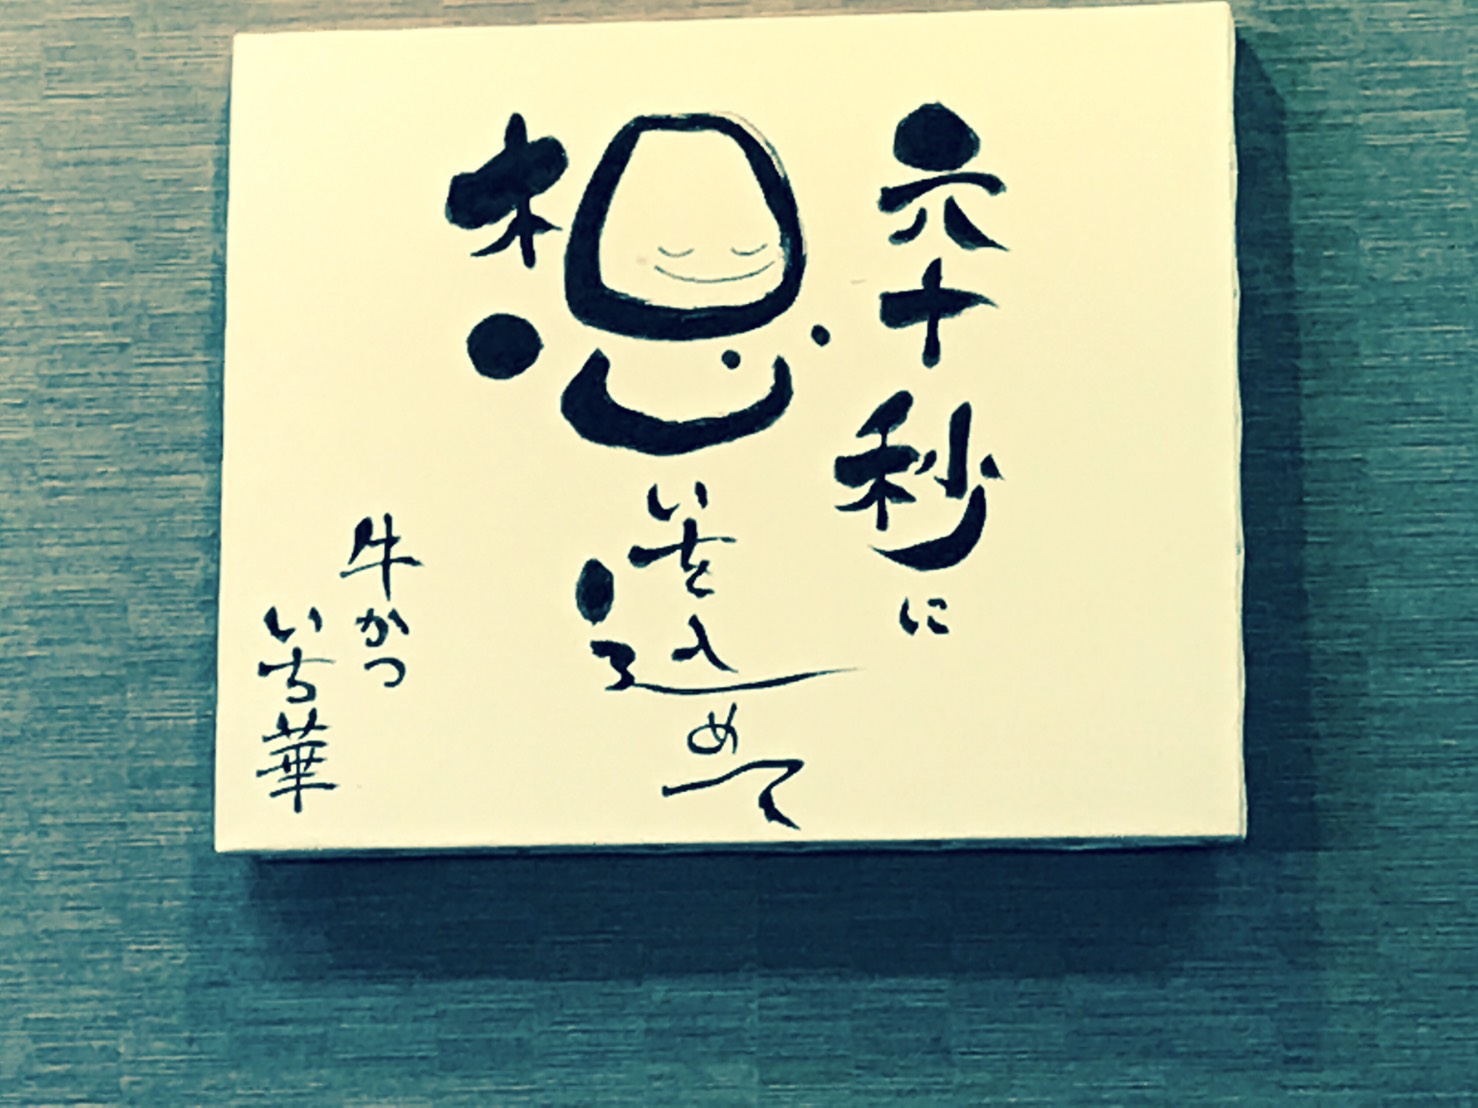 六十秒に
想いを込めて
牛かつ
いち華